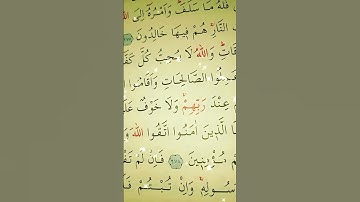 فَلَهُ مَا سَلَفَ وَأَمْرُهُ إِلَى اللّٰهِ
النَّارِ هُمْ فِيهَا خَالِدُونَ
وَاللّٰهُ لَا يُحِبُّ كُلَّ
الصَّالِحَاتِ وَأَقَامُوا
عِنْدَ رَبِّهِمْ وَلَا خَوْفٌ
الَّذِينَ اٰمَنُوا اتَّقُوا اللّٰهَ
مُؤْمِنِينَ ﴿٢٧٨﴾ فَإِنْ لَمْ
وَإِنْ تُبْتُمْ